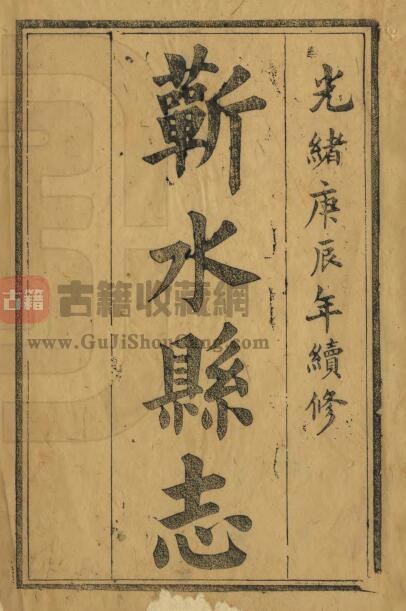 光緒庚辰年續修
蘄水縣志
古籍
古籍收藏網
www.GuJiShouCang.com